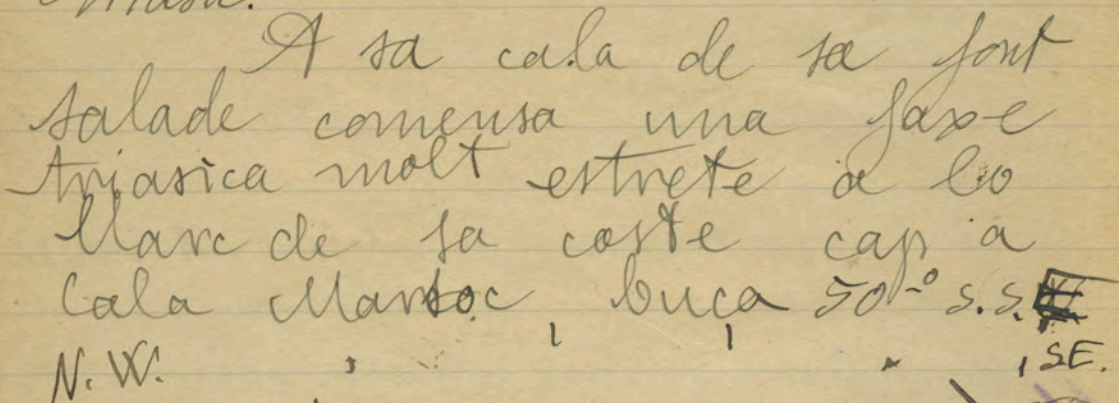 A sa cala de sa font
salade comensa una faxe
triasica molt estrete a lo
llarc de sa coste cap a
Cala Mart so.c buça 50-º S.S.
N.W. , SE.